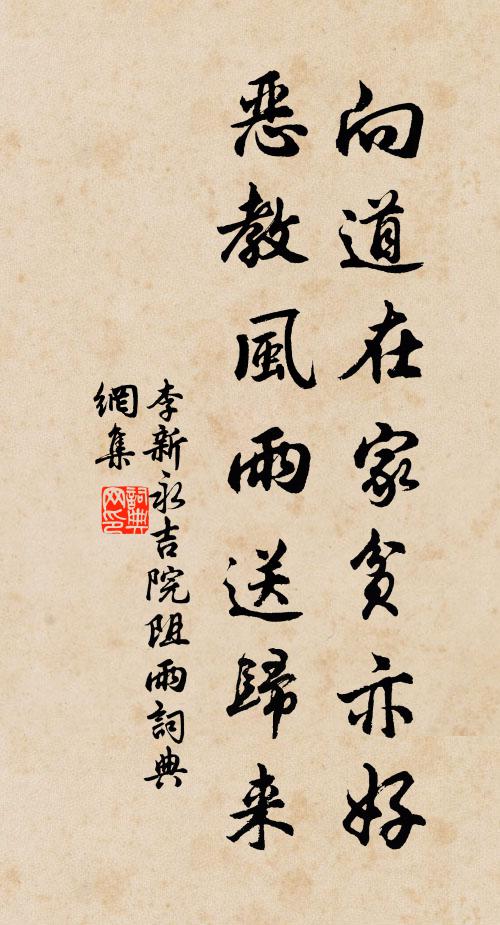 向道在家貧亦好
惡教風雨送歸来
李新永吉院阻雨詞典
網集
詞典
网印